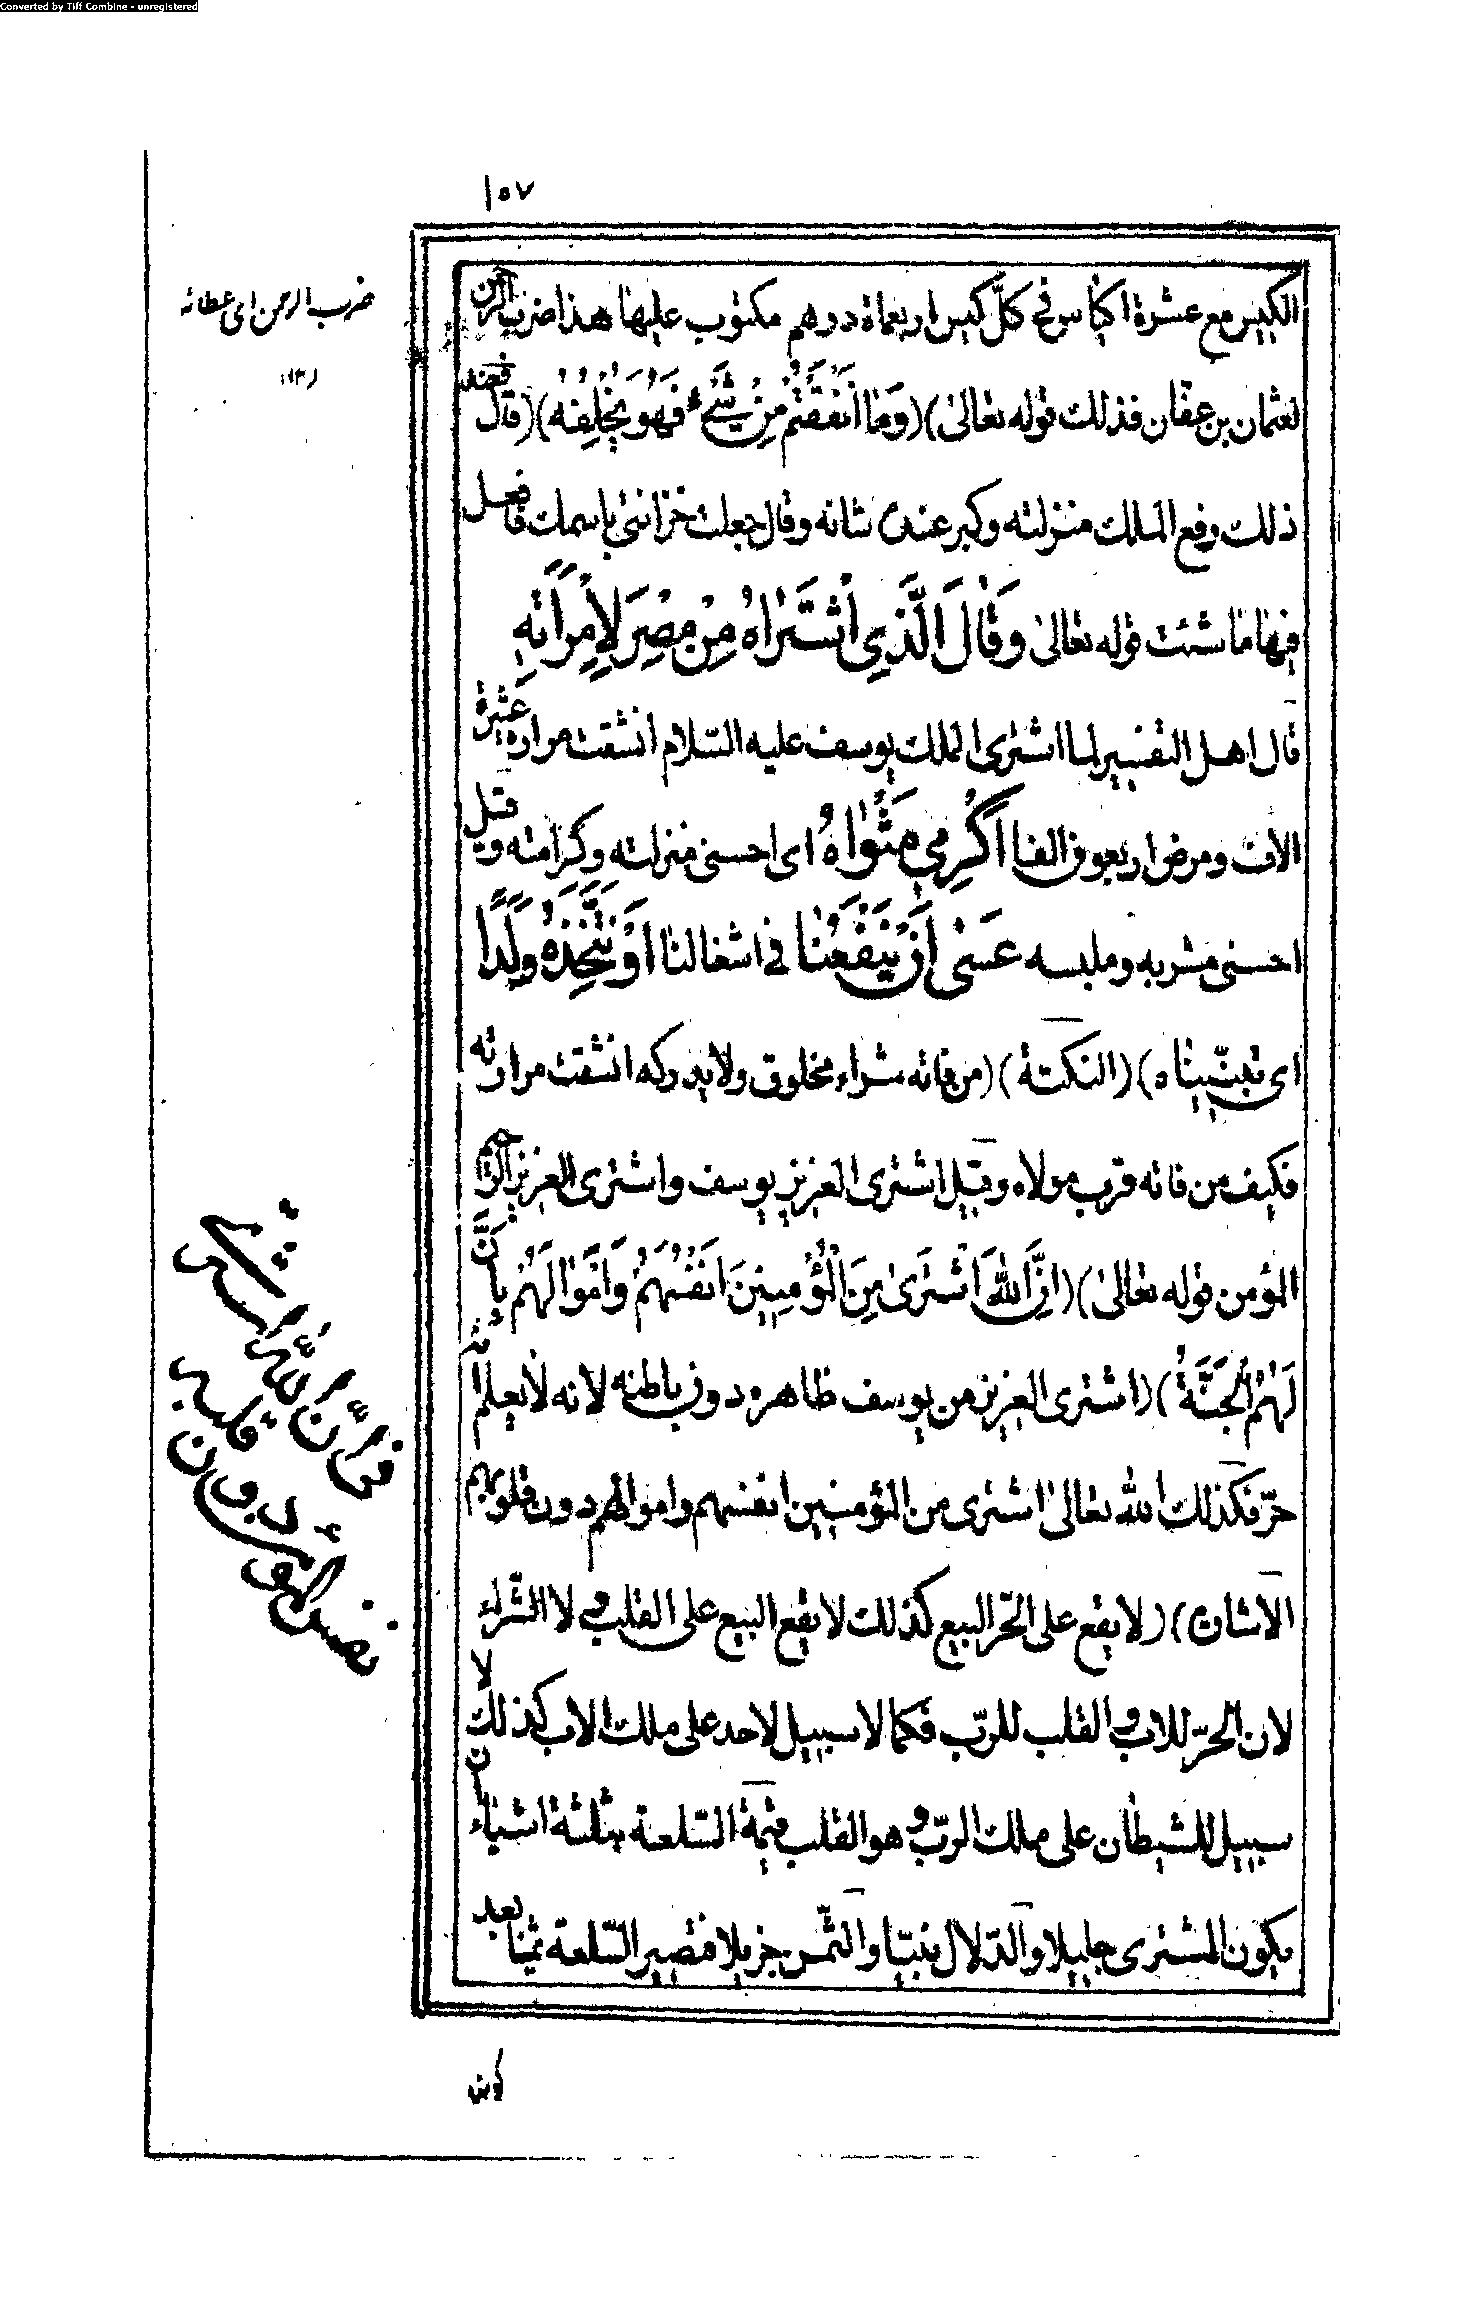 Converted by Tiff Combine - unregistered
١٥٧
الكيس مع عشرة اكياس فى كلّ كيس اربعماة درهم مكتوب عليها هذا ضرب الرحمن
لعثمان بن عفان فذلك قوله تعالىٰ)(وَمَا اَنْفَقْتُمْ مِنْ شَىْءٍ فَهُوَ يُخْلِفُهُ)(قال فعند
ذلك رفع الملك منزلته وكبر عنده شانه وقال جعلت خزائنى باسمك فافعل
فيها ما شئت قوله تعالىٰ وَقَالَ الَّذِي اشْتَرَاهُ مِنْ مِصْرَ لِامْرَاَتِهِ
قال اهل التفسير لما اشترى الملك يوسف عليه السّلام انشقت مرارة عشرة
الاف ومرض اربعون الفا اَكْرِمِي مَثْوَاهُ اى احسنى منزلته وكرامته وقيل
احسنى مشربه وملبسه عَسَىٰ اَنْ يَنْفَعَنَا فى اشغالنا اَوْ نَتَّخِذَهُ وَلَدًا
اى تبنّيناه)(النكتة)(من فاته شراء مخلوق ولا يدركه انشقت مرارته
فكيف من فاته قرب مولاه وقيل اشترى العزيز يوسف واشترى العزيز الرّحيم
المؤمن قوله تعالىٰ)(اِنَّ اللّٰهَ اشْتَرَىٰ مِنَ الْمُؤْمِنِينَ اَنْفُسَهُمْ وَاَمْوَالَهُمْ بِاَنَّ
لَهُمُ الْجَنَّةَ)(اشترى العزيز من يوسف ظاهره دون باطنه لانه لا يعلم انّه
حرّ فكذلك اللّه تعالىٰ اشترى من المؤمنين انفسهم واموالهم دون قلوبهم
الاشارة)(لا يقع على الحّر البيع كذلك لا يقع البيع على القلب ولا الشّراء
لان الحرّ للاب والقلب للرّب فكما لا سبيل لاحد على ملك الاب كذلك لا
سبيل للشيطان على ملك الربّ وهو القلب قيمة السّلعة بثلثة اشياء ان
يكون المشترى جليلا والدّلال بنتيّا والثّمن جزيلا فتصير السّلعة ثمينا بعد
ضرب الرحمن اى عطائه
١٣